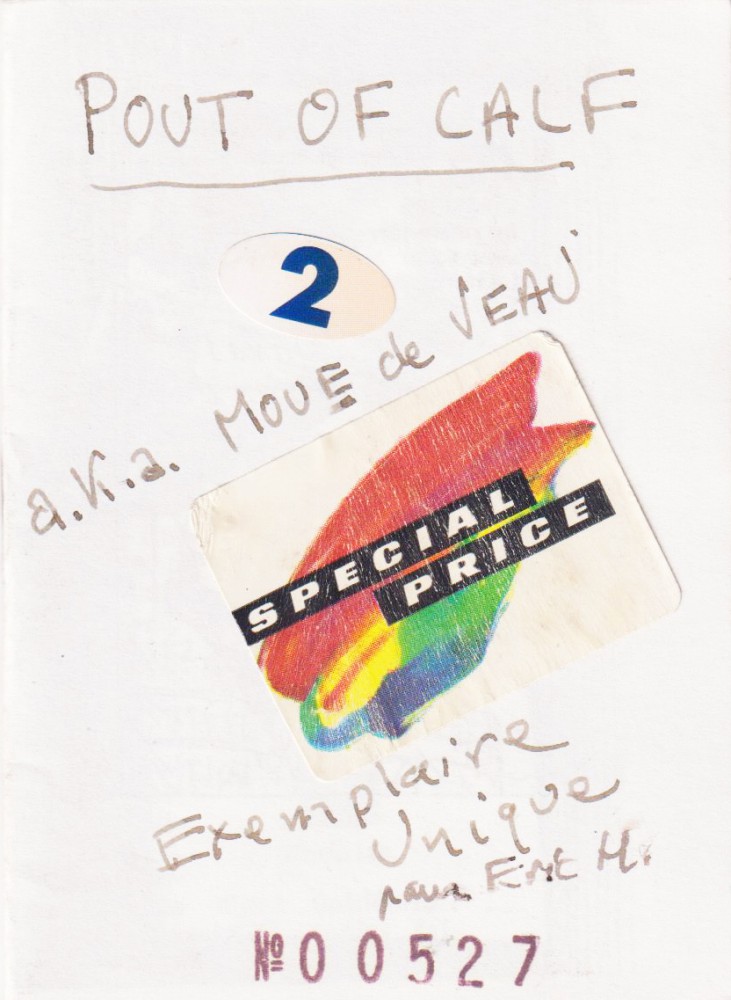 POUT OF CALF
2
a.k.a. MOUE de VEAU
SPECIAL
PRICE
Exemplaire
Unique
pour
Nº 00527